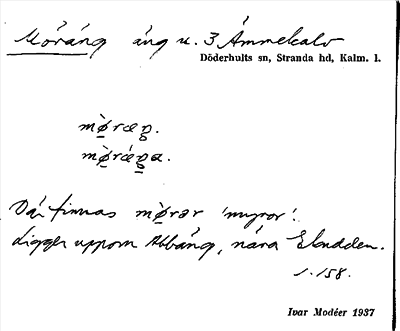 Möräng äng u. 3 Ämmekalv
Döderhults sn, Stranda hd, Kalm. l.
mø̀ræŋ.
mø̀rǽŋa.
Där finnas mø̀rər 'myror'.
Ligger uppom Abbäng, nära Ekudden.
1.158.
Ivar Modéer 1937